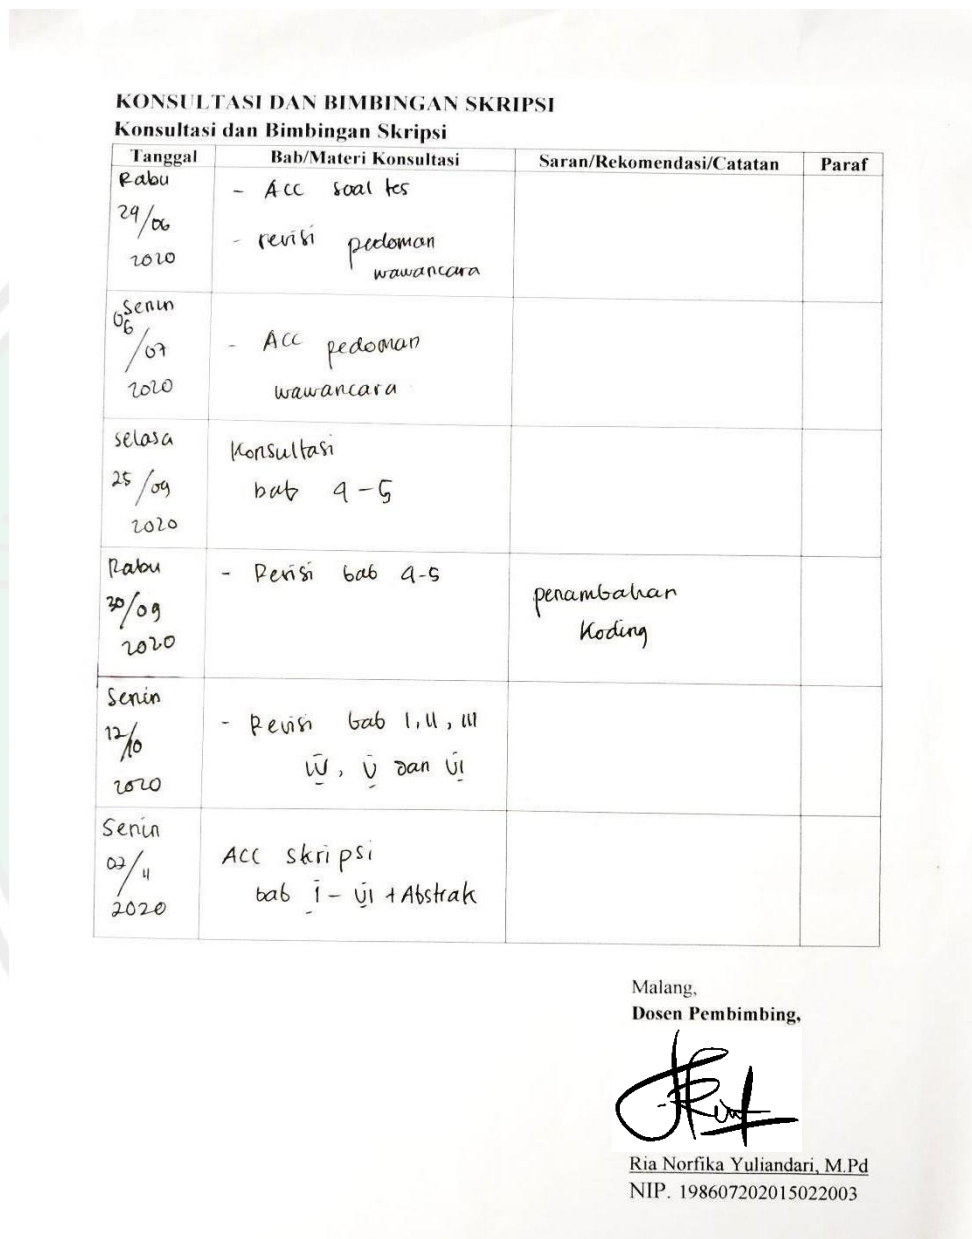 KONSULTASI DAN BIMBINGAN SKRIPSI
Konsultasi dan Bimbingan Skripsi
Tanggal Bab/Materi Konsultasi Saran/Rekomendasi/Catatan Paraf
Rabu
29/06
2020
- Acc soal tes
- revisi pedoman
wawancara
Senin
06/07
2020
- Acc pedoman
wawancara
selasa
25/09
2020
Konsultasi
bab 4-5
Rabu
30/09
2020
- Revisi bab 4-5
penambahan
Koding
Senin
12/10
2020
- Revisi bab I, II, III
IV, V dan VI
Senin
/11
2020
ACC skripsi
bab I - VI + Abstrak
Malang,
Dosen Pembimbing,
Ria Norfika Yuliandari, M.Pd
NIP. 198607202015022003